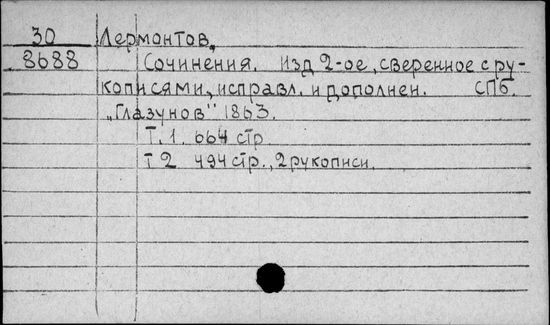 30 Лермонтов,
8688 Сочинения. Изд 2-ое, сверенное с ру-
кописями, исправл. и дополнен. СПб.
„Глазунов" 1863.
Т. 1. 664 стр
Т 2 494 стр., 2 рукописи.